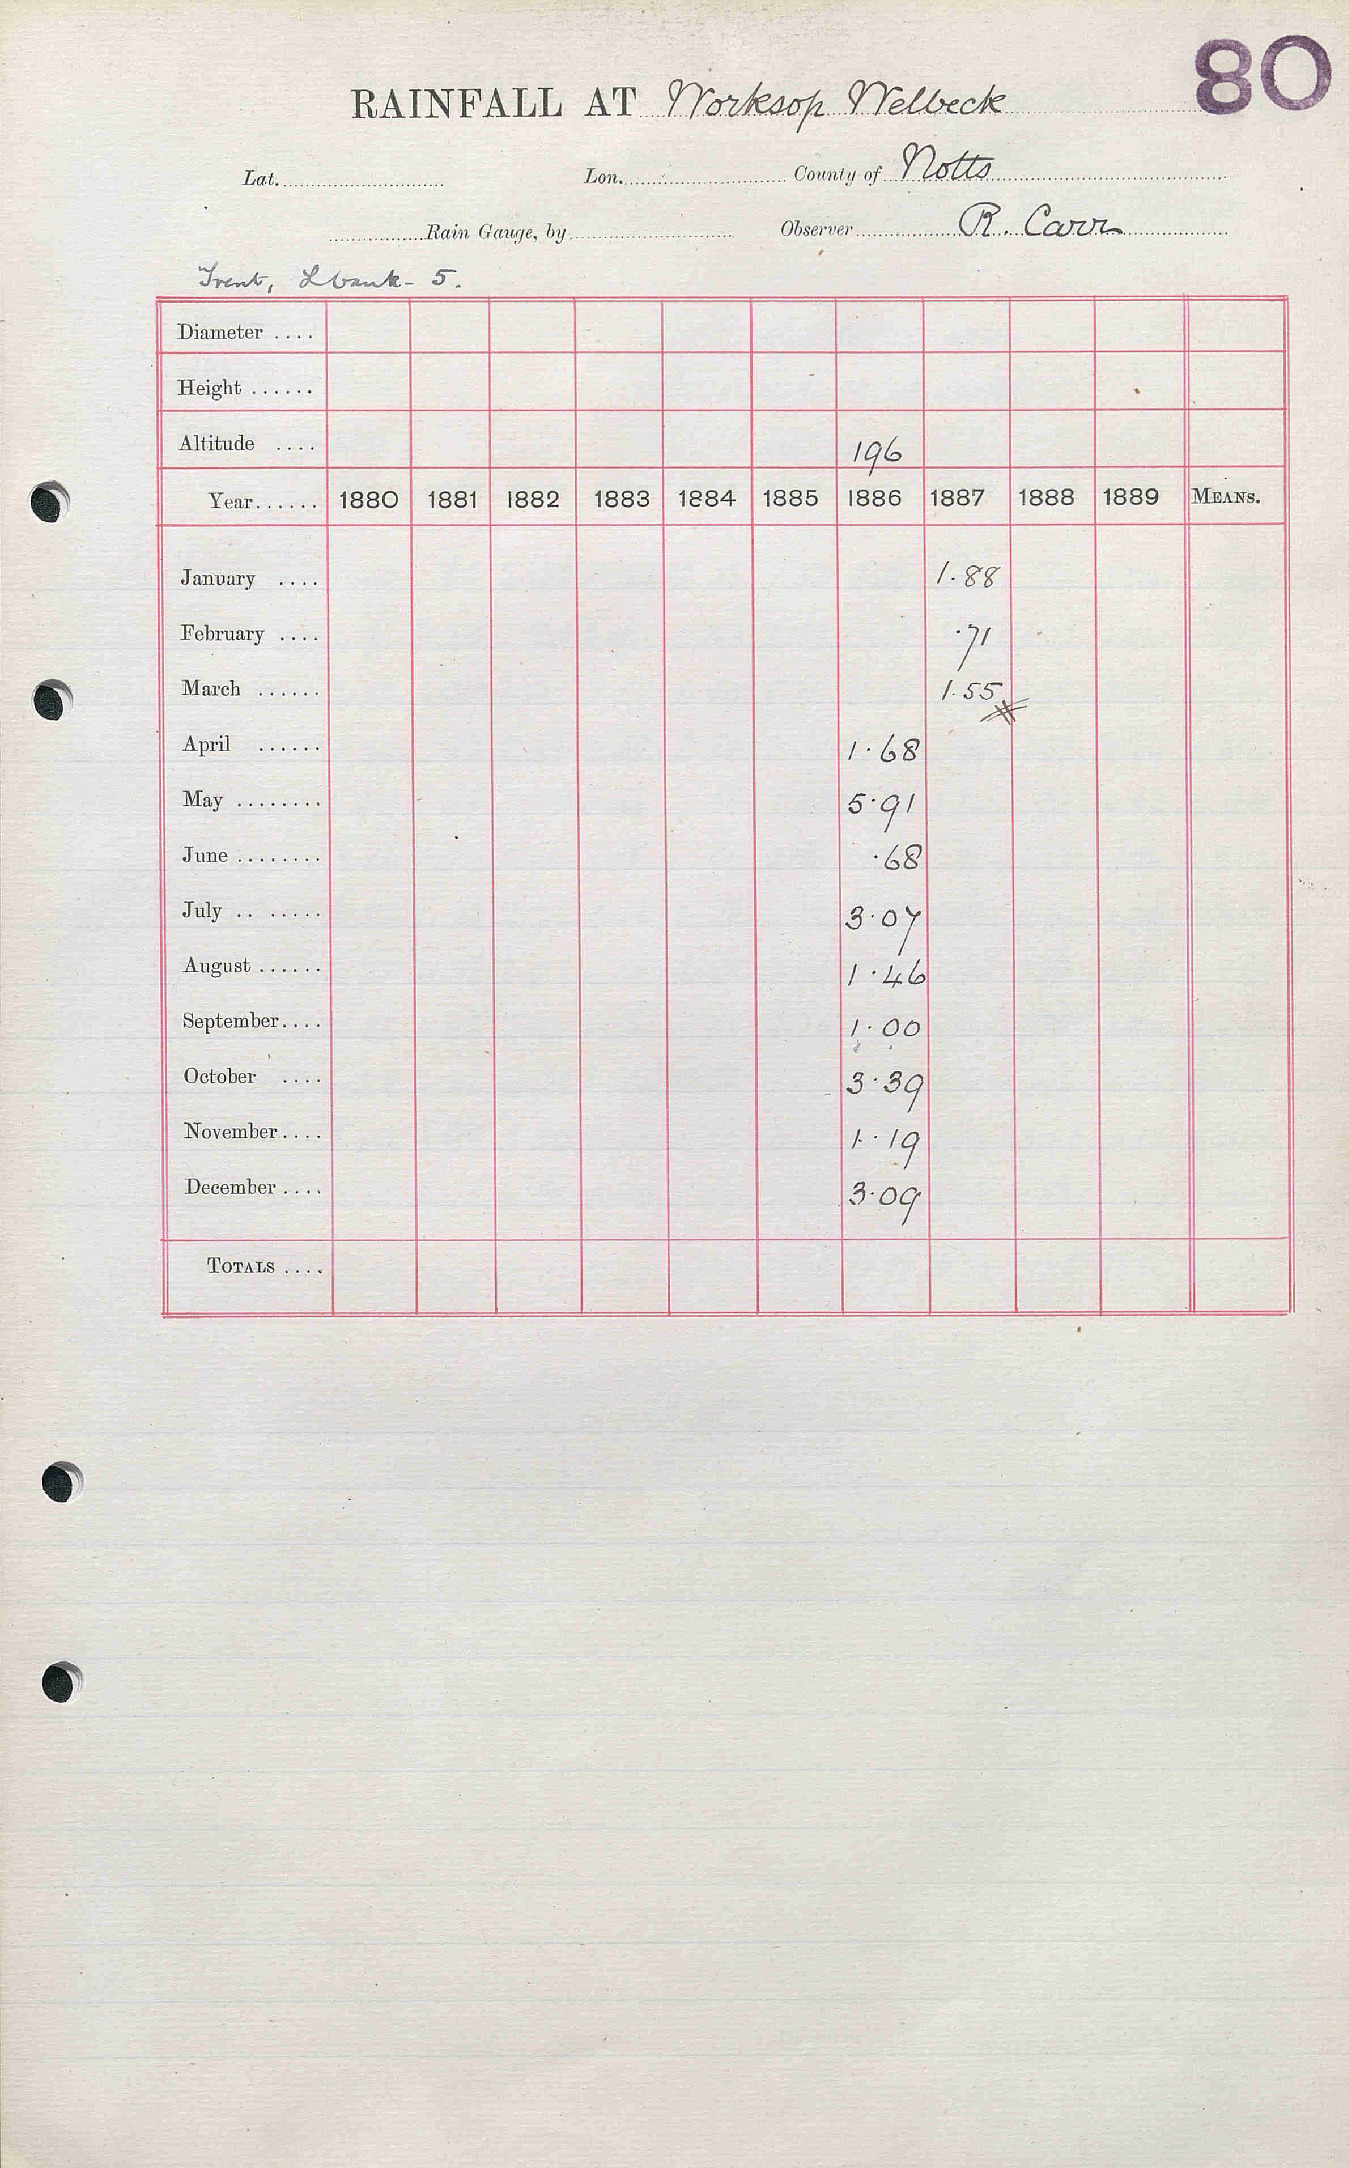 80
RAINFALL AT Worksop Welbeck
Lat. Lon. County of Notts
Rain Gauge, by Observer R. Carr
Trent, L bank - 5.
Diameter ....
Height ......
Altitude .... 196
Year...... 1880 1881 1882 1883 1884 1885 1886 1887 1888 1889 MEANS.
January .... 1.88
February .... .71
March ...... 1.55
April ...... 1.68
May ........ 5.91
June ........ .68
July .. ..... 3.07
August ...... 1.46
September.... 1.00
October .... 3.39
November.... 1.19
December .... 3.09
TOTALS ....